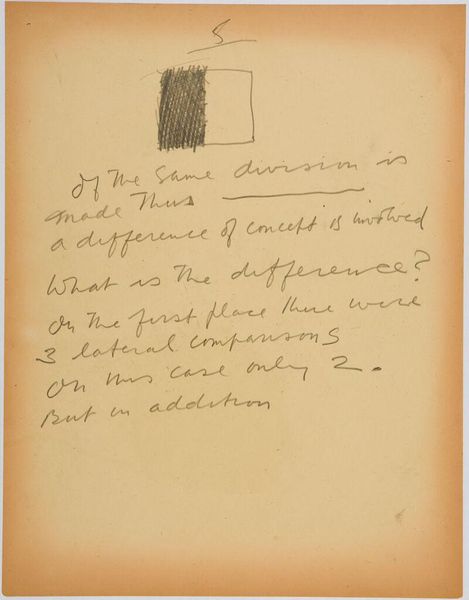 5
If the same division is
made thus
a difference of concept is involved
What is the difference?
In the first place there were
3 lateral comparisons
In this case only 2.
But in addition